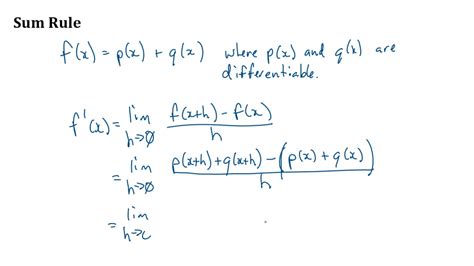 Sum Rule
f(x) = p(x) + q(x) where p(x) and q(x) are
differentiable.
f'(x) = lim h→0 (f(x+h) - f(x))/h
= lim h→0 (p(x+h) + q(x+h) - (p(x) + q(x)))/h
= lim h→c